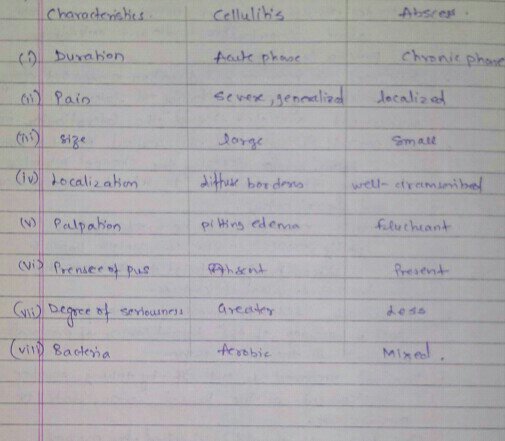 Characteristics. Cellulitis Abscess.
(i) Duration Acute phase Chronic phase
(ii) Pain severe, generalized localized
(iii) size large small
(iv) Localization diffuse borders well-circumscribed
(v) Palpation pitting edema fluctuant
(vi) Presence of pus Absent Present
(vii) Degree of seriousness Greater Less
(viii) Bacteria Aerobic Mixed.